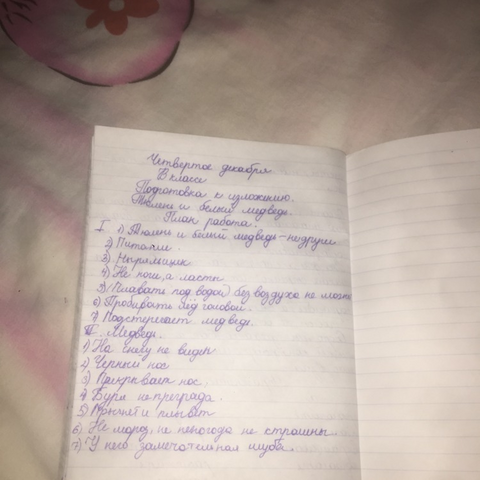 Четвертое декабря
В классе
Подготовка к изложению.
Тюлени и белый медведь.
План работа.
I 1) Тюлень и белый медведь – не други
2) Питомцы.
3) Ныряльщик
4) Не ноги, а ласты
5) Плавать под водой без воздуха не может
6) Пробивать лёд головой.
7) Подстерегает медведь.
II. Медведь.
1) На снегу не виден
2) Черный нос
3) Прикрывает нос.
4) Буря не преграда.
5) Прыгнет и плывет
6) Не мороз, не непогода не страшны.
7) У него замечательная шуба.